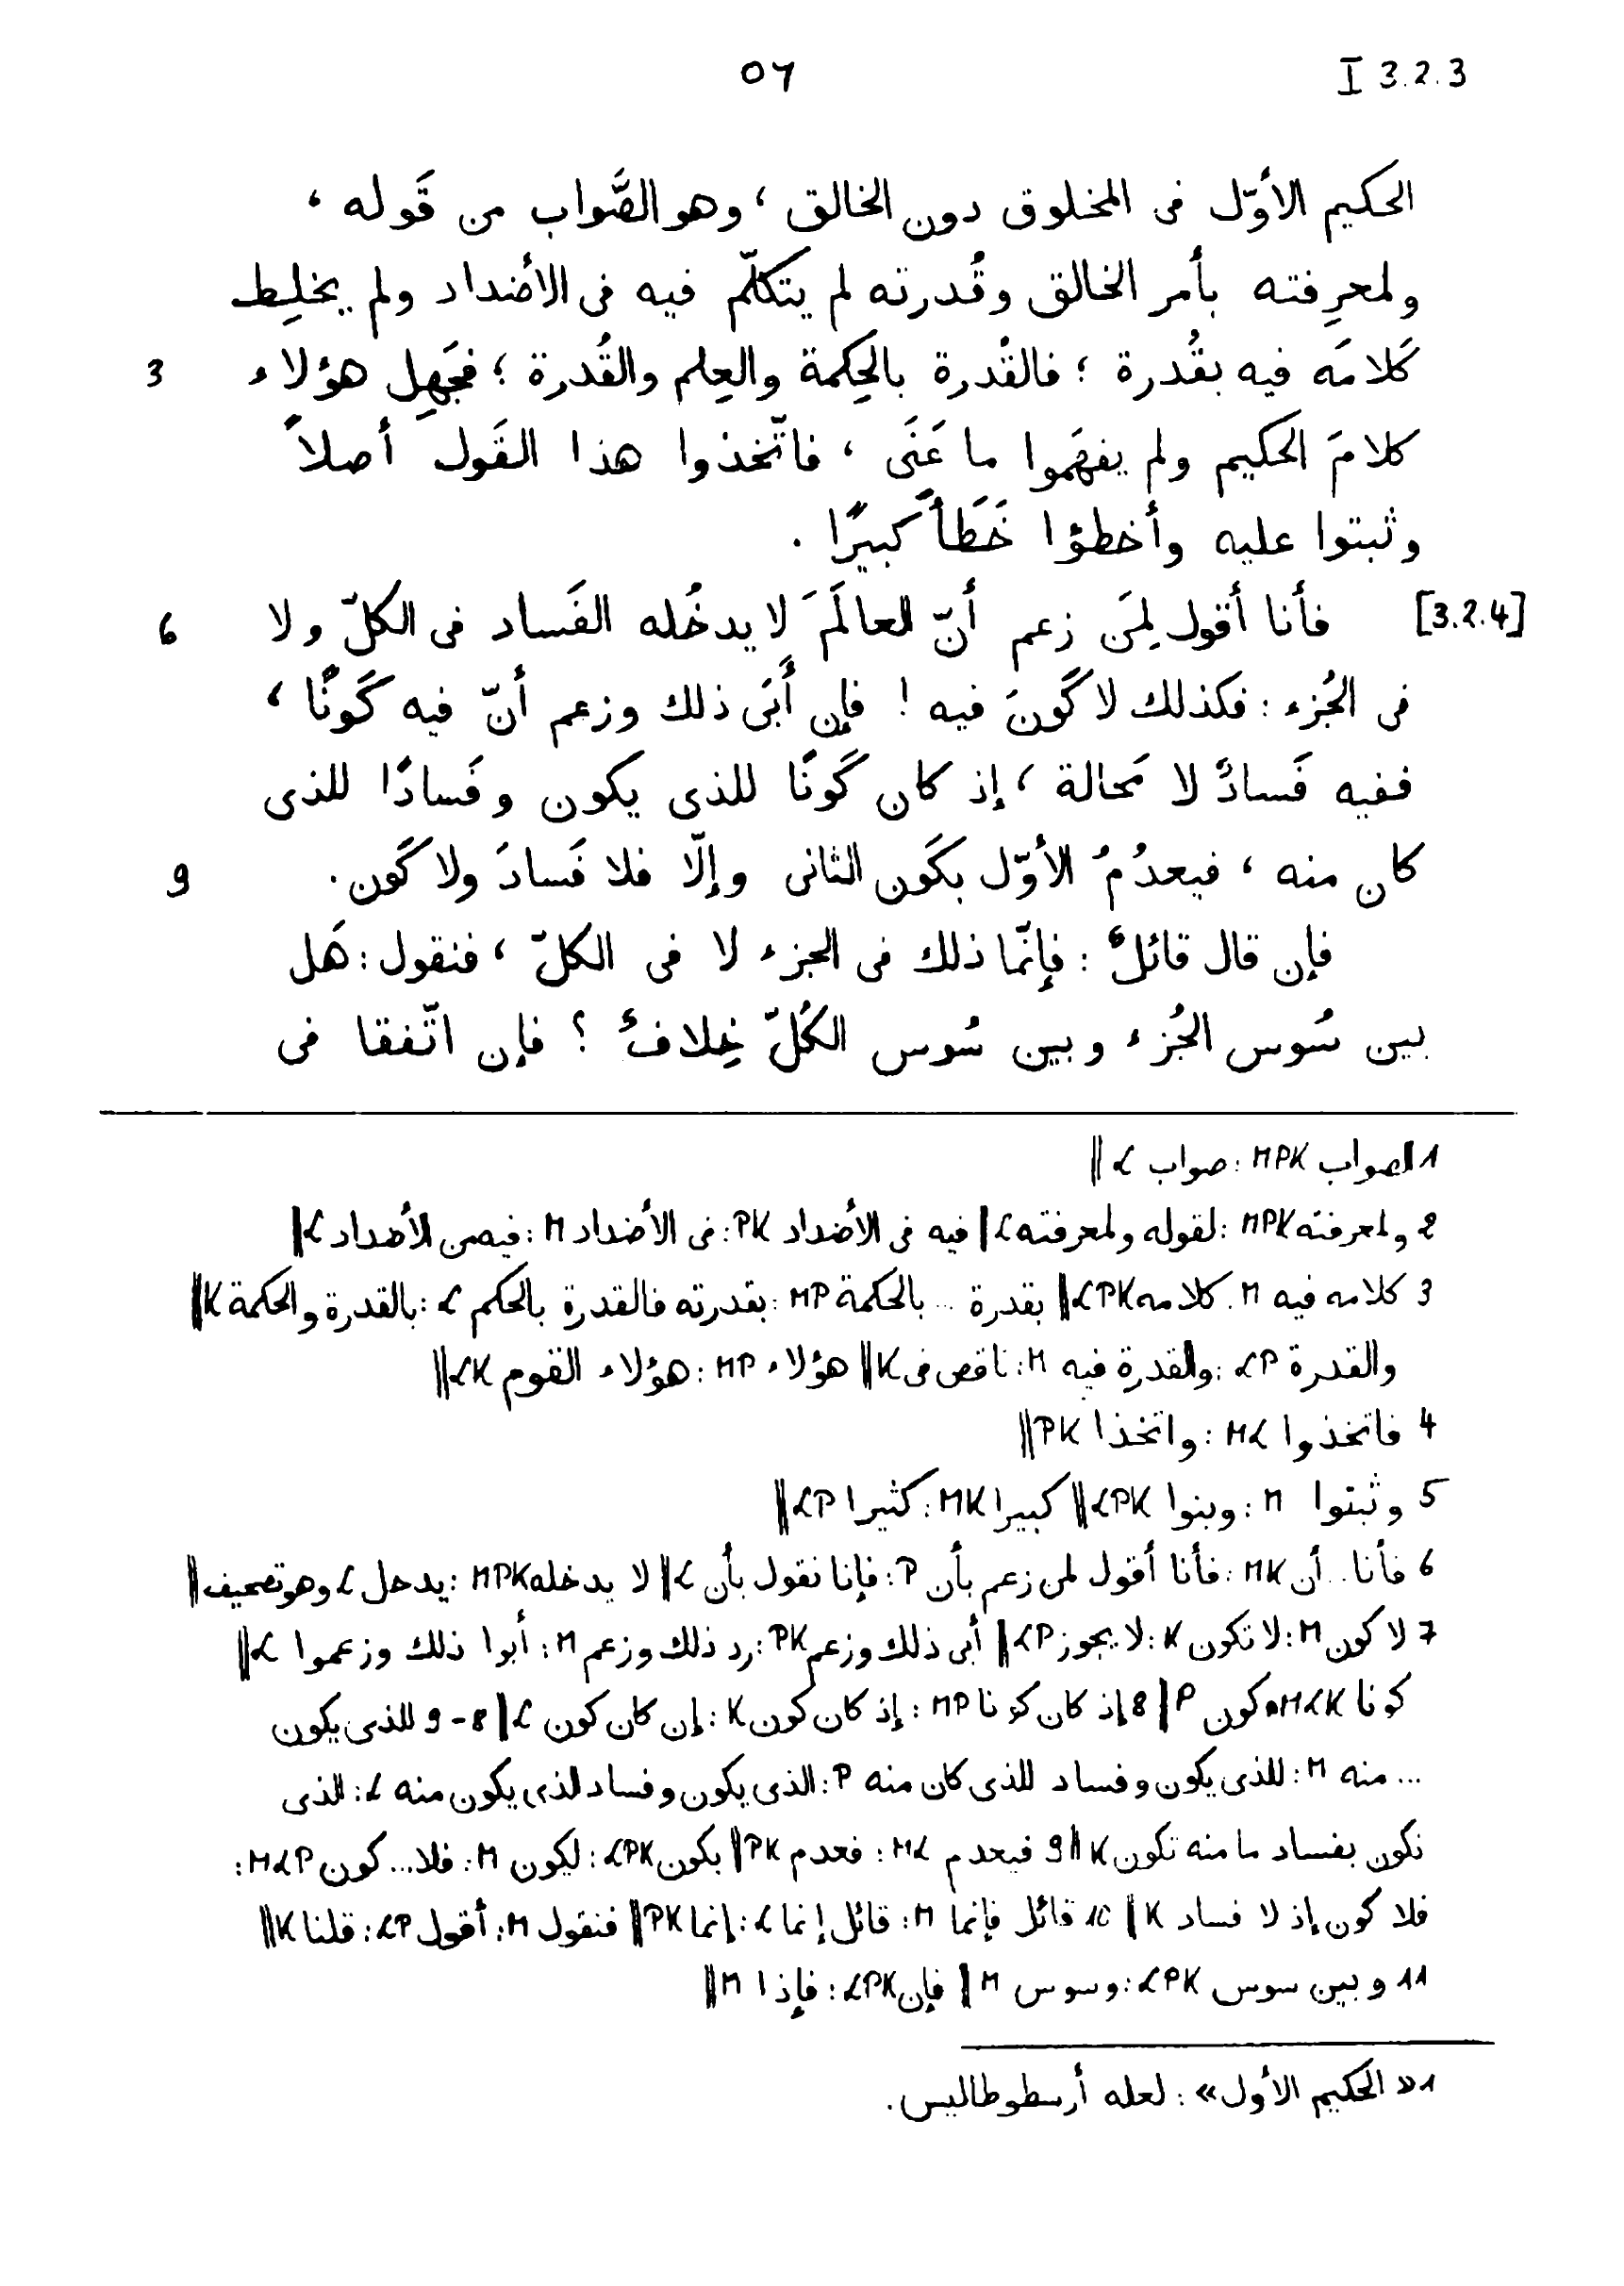 ٥٦ I 3.2.3
الحكيم الأوّل فى المخلوق دون الخالق ، وهو الصَّواب من قَوله ،
ولمعرِفته بأمر الخالق وقُدرته لم يتكلّم فيه فى الأضداد ولم يخلِط
كَلامَه فيه بقُدرة ؛ فالقُدرة بالحِكمة والعِلم والقُدرة ؛ فجَهِل هؤلاء 3
كلامَ الحكيم ولم يفهَموا ما عَنَى ، فاتّخذوا هذا القَول أصلاً
وثبتوا عليه وأخطؤا خَطَأً كبيرًا .
[3.2.4] فأنا أقول لِمَن زعم أنّ العالَمَ لا يدخُله الفَساد فى الكلّ ولا 6
فى الجُزء : فكذلك لا كَونَ فيه ! فإن أَبَى ذلك وزعم أنّ فيه كَونًا ،
ففيه فَسادٌ لا مَحالة ، إذ كان كَونًا للذى يكون وفَسادًا للذى
كان منه ، فيعدُمُ الأوّل بكَون الثانى وإلّا فلا فَسادَ ولا كَون . 9
فإن قال قائلٌ : فإنّما ذلك فى الجزء لا فى الكلّ ، فنقول : هَل
بين سُوس الجُزء وبين سُوس الكُلّ خِلافٌ ؟ فإن اتّفقا فى
1 الصواب MPK : صواب L ||
2 ولمعرفته MPK : لقوله ولمعرفته L || فيه فى الأضداد PK : فى الأضداد M : فيه من الأضداد L ||
3 كلامه فيه M : كلامه LPK || بقدرة ... بالحكمة MP : بقدرته فالقدرة بالحكم L : بالقدرة والحكمة K ||
والقدرة LP : والقدرة فيه M : ناقص فى K || هؤلاء MP : هؤلاء القوم LK ||
4 فاتخذوا ML : واتخذا PK ||
5 وثبتوا M : وبنوا LPK || كبيرا MK : كثيرا LP ||
6 فأنا .. أن MK : فأنا أقول لمن زعم بأن P : فإنا نقول بأن L || لا يدخله MPK : يدحل L وهو تصحيف ||
7 لا كون M : لا تكون K : لا يجوز LP || أبى ذلك وزعم PK : رد ذلك وزعم M : أبوا ذلك وزعموا L ||
كونا MLK : كون P || 8 إذ كان كونا MP : إذ كان كون K : إن كان كون L || 8 - 9 للذى يكون
... منه M : للذى يكون وفساد للذى كان منه P : الذى يكون وفساد لذى يكون منه L : الذى
نكون بفساد ما منه تكون K || 9 فيعدم ML : فعدم PK || بكون LPK : ليكون M : فلا ... كون MLP :
فلا كون إذ لا فساد K || 10 قائل فإنما M : قائل إنما L : إنما PK || فنقول M : أقول LP : قلنا K ||
11 وبين سوس LPK : وسوس M || فإن LPK : فإذا M ||
1 « الحكيم الأول » : لعله أرسطوطاليس .